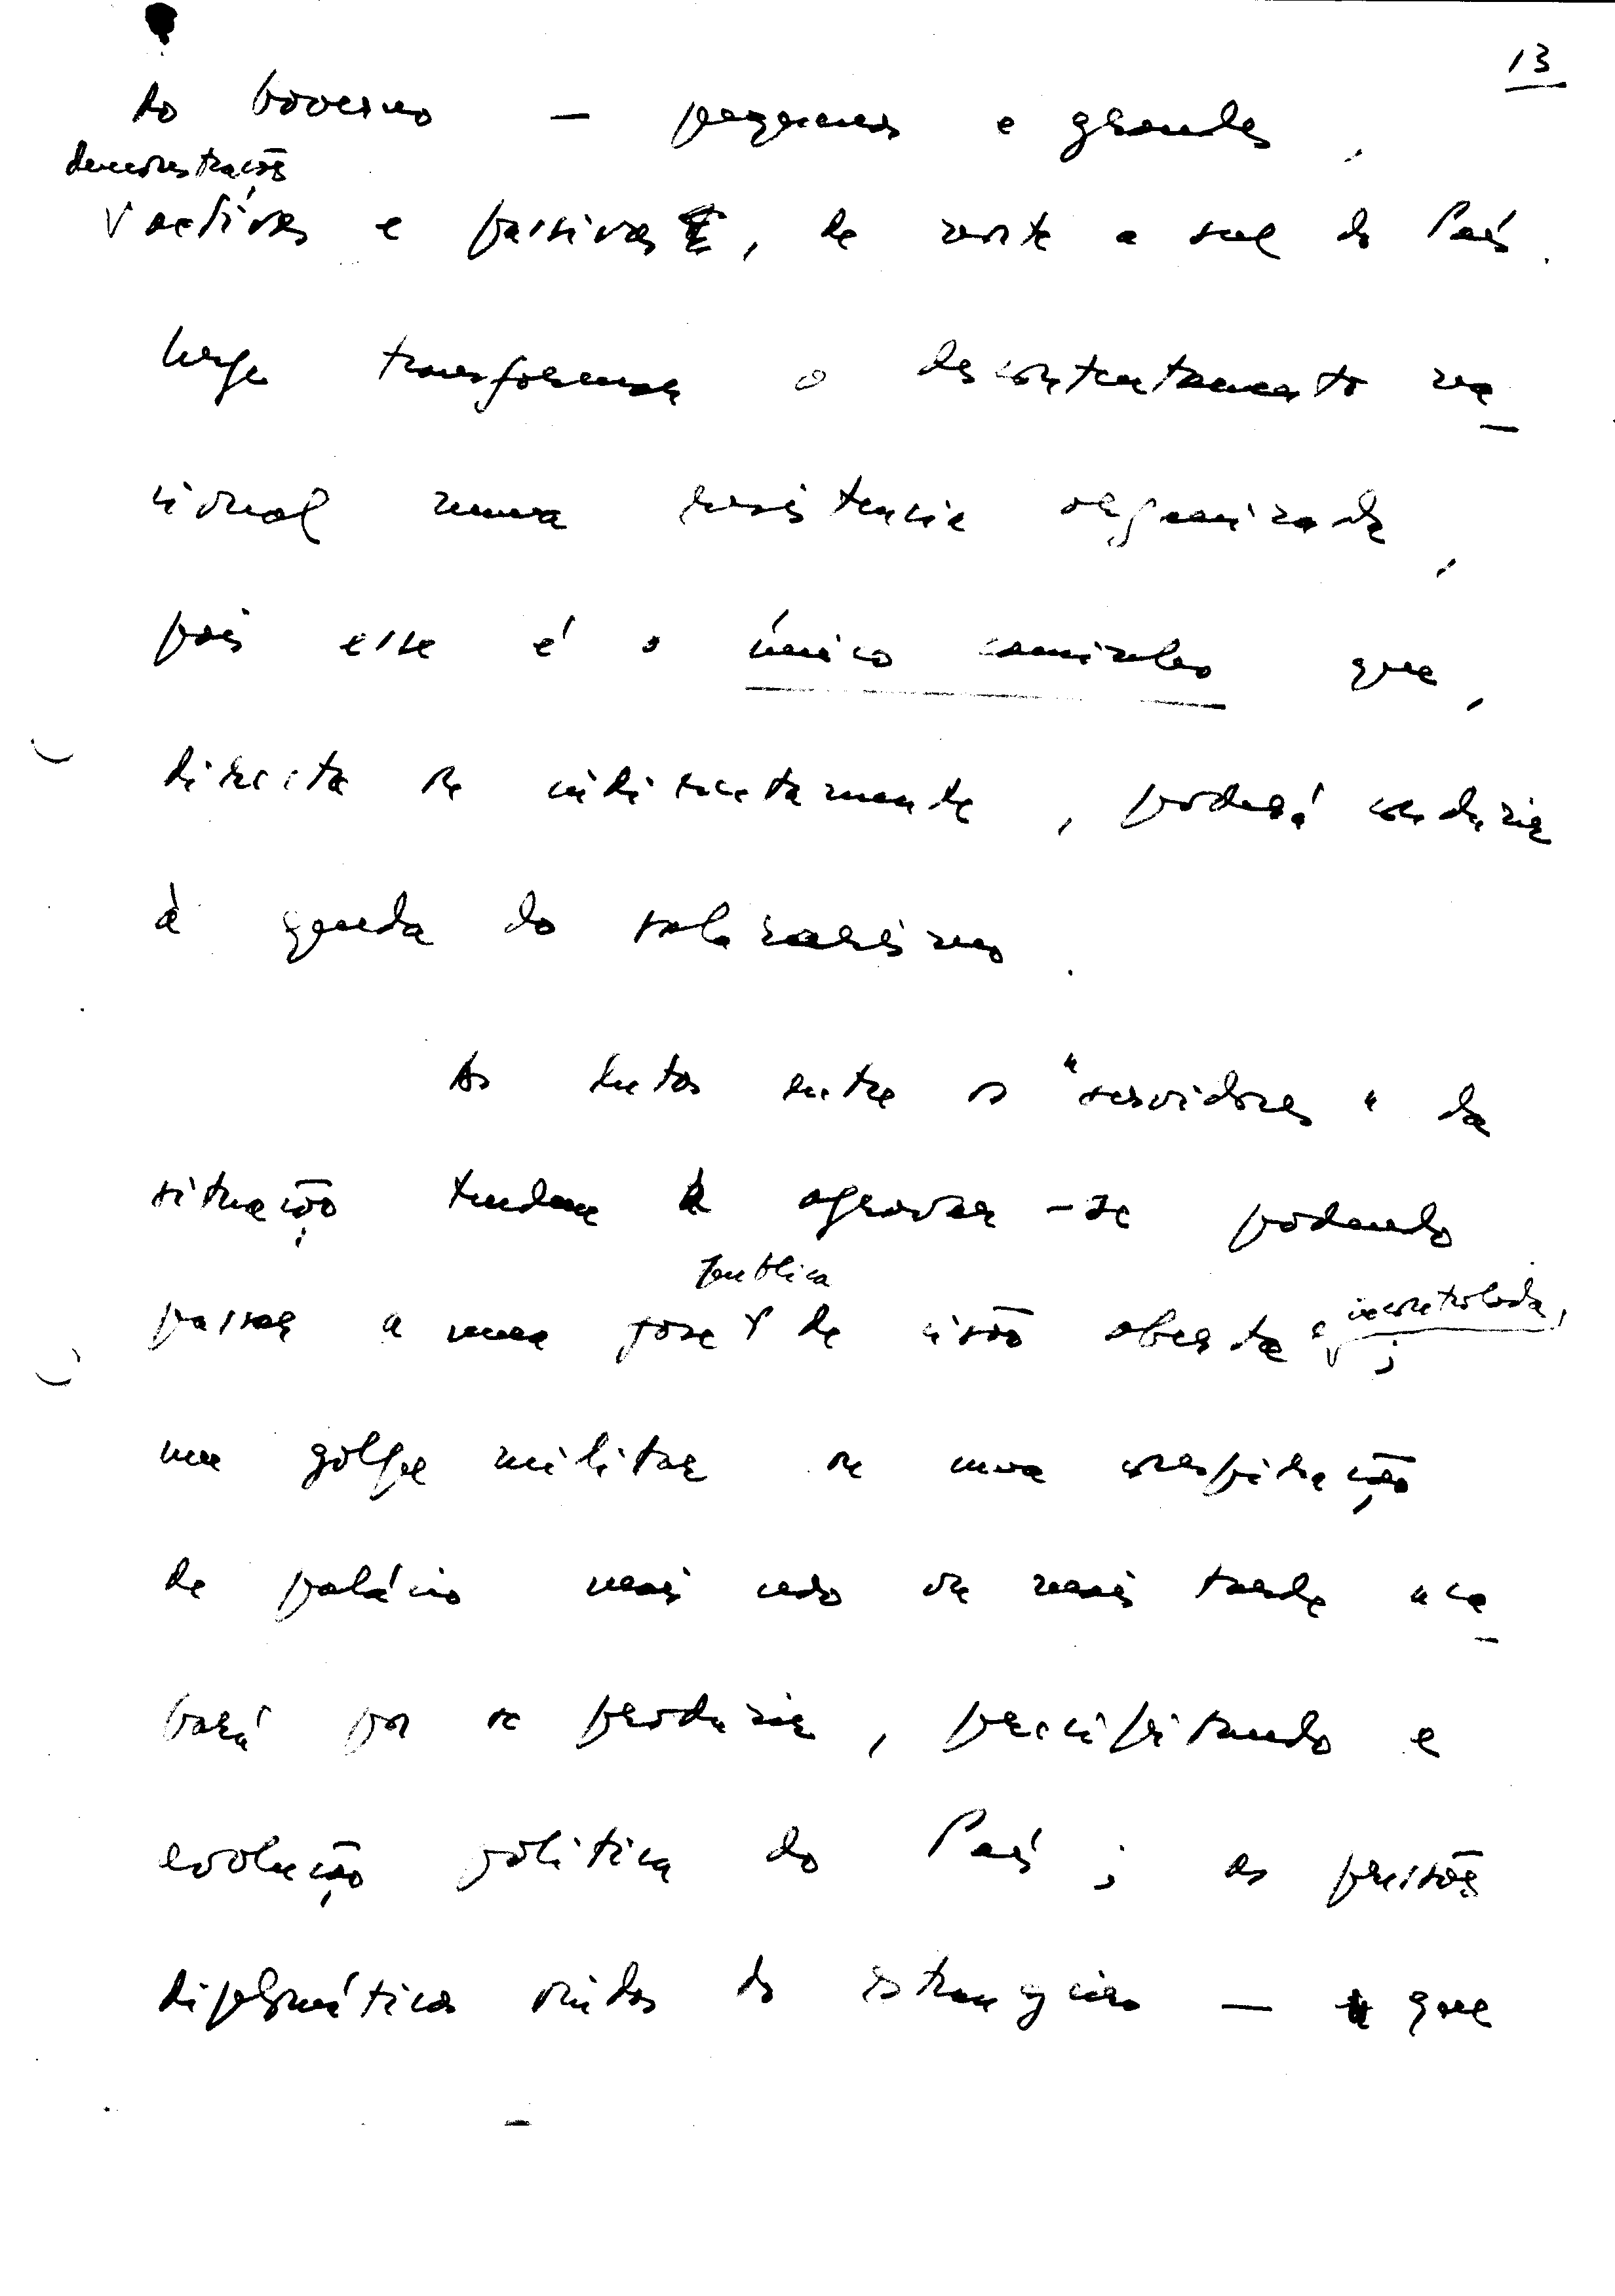 13
do Governo — pequenas e grandes,
demonstrações
activas e passivas, de norte a sul do País.
Urge transformar o descontentamento na-
cional numa resistencia organizada,
pois esse é o único caminho que,
directa ou indirectamente, poderá conduzir
à queda do salazarismo.
As lutas entre os "servidores" da
situação tendem a agravar-se podendo
publica
passar a uma fase de cisão aberta e incontrolada,;
um golpe militar ou uma conspiração
de palácio mais cedo ou mais tarde aca-
bará por se produzir, precipitando a
evolução politica do País; as pressões
diplomáticas vindas do estrangeiro — que